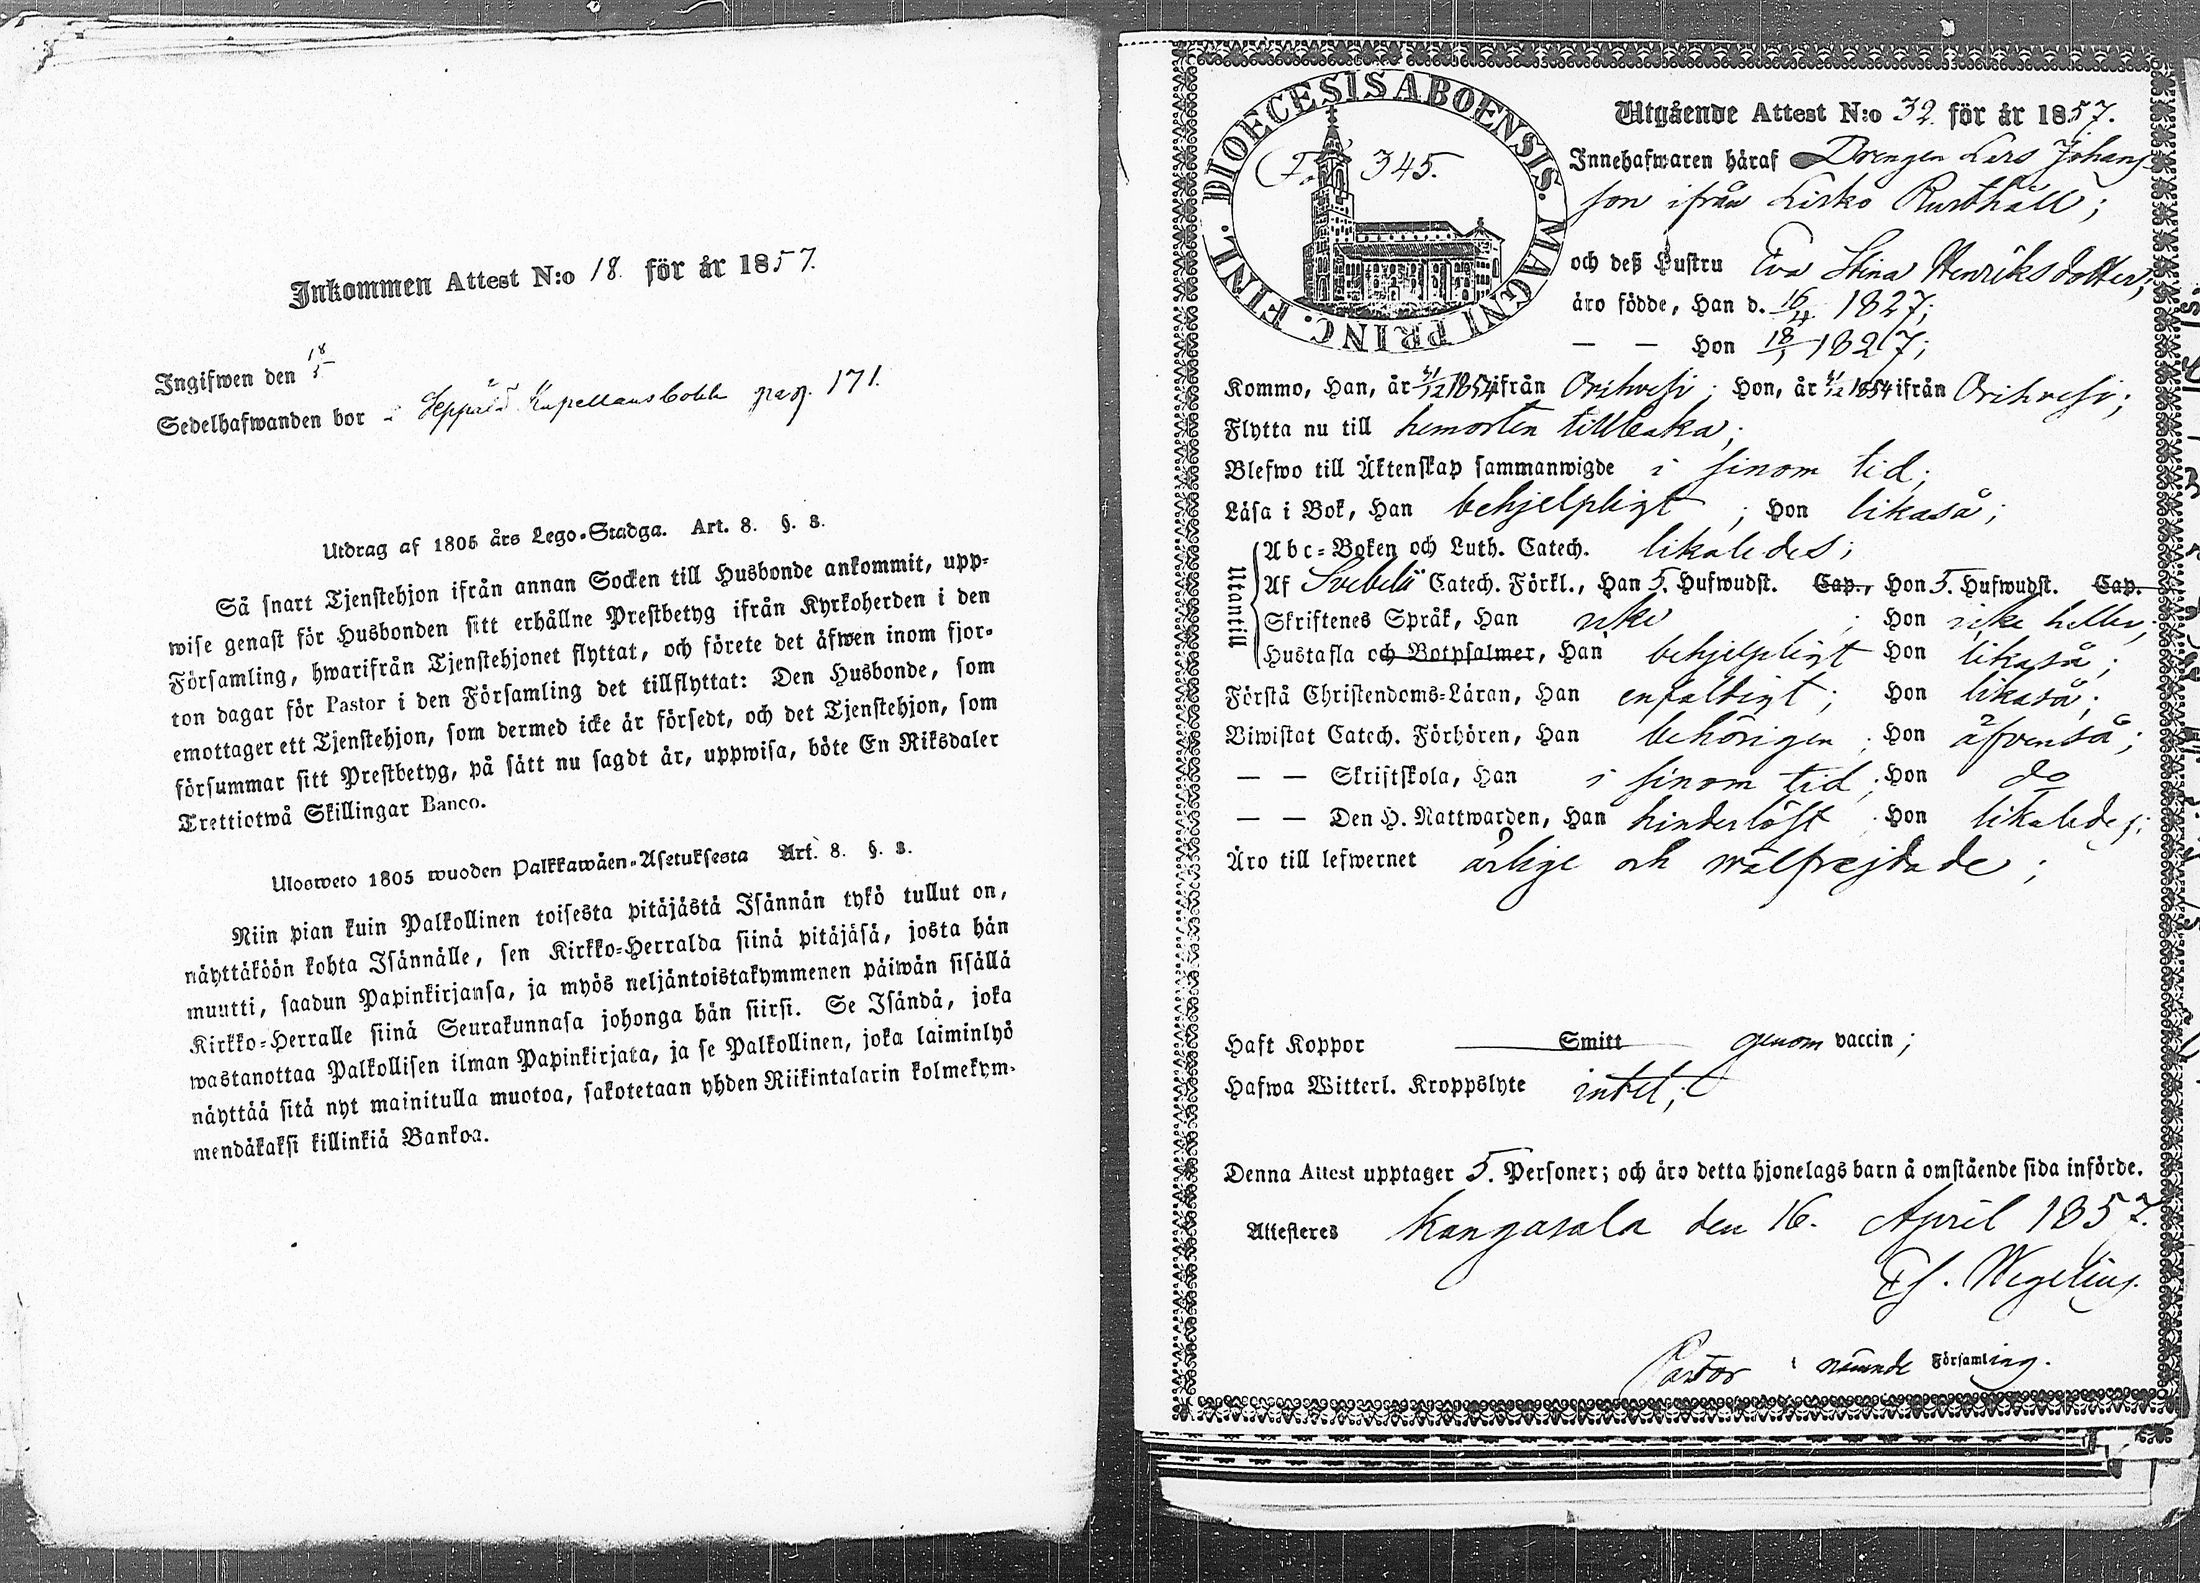 Inkommen Attest N:o 18 för år 1857.
Ingifwen den 18/5
Sedelhafwanden bor i Seppälä Kapellansbohl pag. 171.
Utdrag af 1805 års Lego-Stadga. Art. 8. §. 3.
Så snart Tjenstehjon ifrån annan Socken till Husbonde ankommit, upp-
wise genast för Husbonden sitt erhållne Prestbetyg ifrån Kyrkoherden i den
Församling, hwarifrån Tjenstehjonet flyttat, och förete det äfwen inom fjor-
ton dagar för Pastor i den Församling det tillflyttat: Den Husbonde, som
emottager ett Tjenstehjon, som dermed icke är försedt, och det Tjenstehjon, som
försummar sitt Prestbetyg, på sätt nu sagdt är, uppwisa, böte En Riksdaler
Trettiotwå Skillingar Banco.
Ulosweto 1805 wuoden Palkkawäen-Asetuksesta Art. 8. §. 3.
Niin pian kuin Palkollinen toisesta pitäjästä Isännän tykö tullut on,
näyttäköön kohta Isännälle, sen Kirkko-Herralda siinä pitäjäsä, josta hän
muutti, saadun Papinkirjansa, ja myös neljäntoistakymmenen päiwän sisällä
Kirkko-Herralle siinä Seurakunnasa johonga hän siirsi. Se Isändä, joka
wastanottaa Palkollisen ilman Papinkirjata, ja se Palkollinen, joka laiminlyö
näyttää sitä nyt mainitulla muotoa, sakotetaan yhden Riikintalarin kolmekym-
mendäkaksi killinkiä Bankoa.
DIOECESIS ABOENSIS. MAGNI PRINC. FINL.
Fol 345.
Utgående Attest N:o 32. för år 1857.
Innehafwaren häraf Drengen Lars Johans
son ifrån Lisko Rusthåll;
och deß Hustru Eva Stina Henriksdotter;
äro födde, Han d. 16/4 1827;
— — Hon 18/1 1827;
Kommo, Han, år 1854 ifrån Orihvesi; Hon, år 1854 ifrån Orihvesi;
Flytta nu till hemorten tillbaka;
Blefwo till Äktenskap sammanwigde i sinom tid;
Läsa i Bok, Han behjelpligt; Hon likaså;
Utantill
Abc-Boken och Luth. Catech. likaledes;
Af Svebelii Catech. Förkl., Han 5. Hufwudst. Cap., Hon 5. Hufwudst. Cap.
Skriftenes Språk, Han icke; Hon icke heller;
Hustafla och Botpsalmer, Han behjelpligt Hon likaså;
Förstå Christendoms-Läran, Han enfaldigt; Hon likaså;
Biwistat Catech. Förhören, Han behörigen; Hon äfvenså;
— — Skriftskola, Han i sinom tid; Hon do
— — Den H. Nattwarden, Han hinderlöst Hon likaledes;
Äro till lefwernet ärlige och wälfrejdade;
Haft Koppor Smitt genom vaccin;
Hafwa Witterl. Kroppslyte intet;
Denna Attest upptager 5. Personer; och äro detta hjonelags barn å omstående sida införde.
Attesteres Kangasala den 16. April 1857.
Wegelius.
Pastor i nämnde Församling.